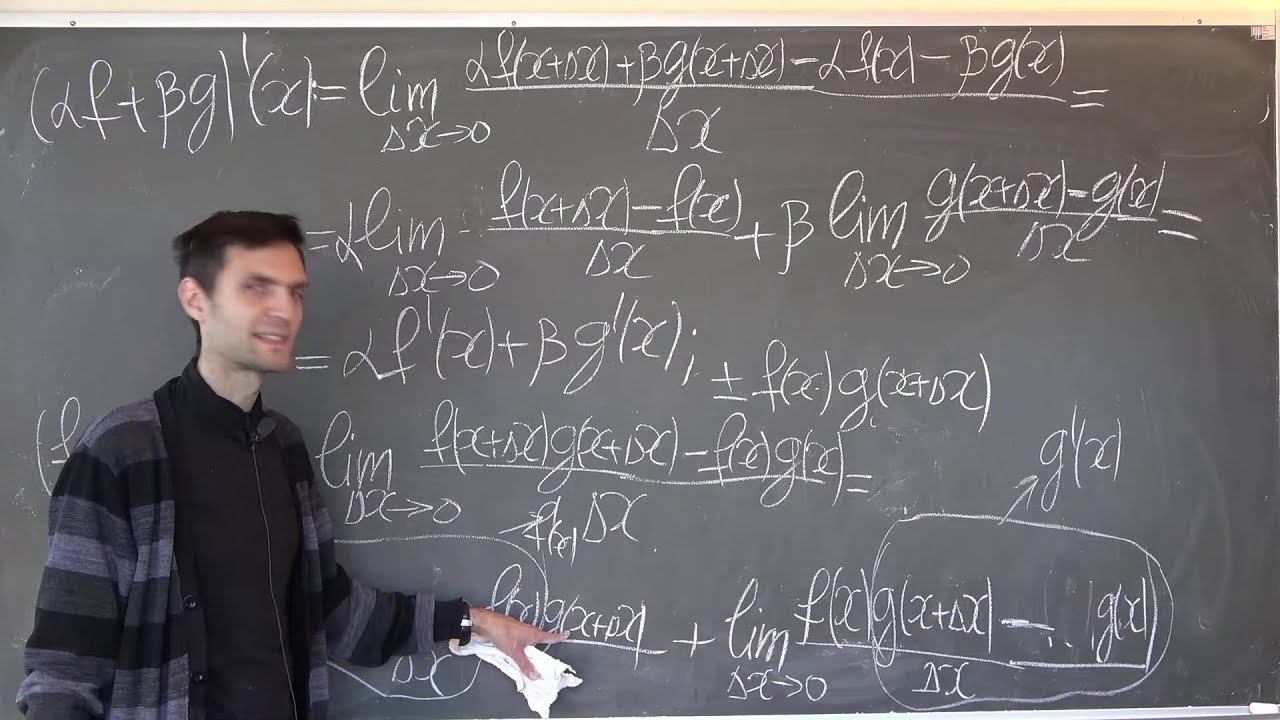 (αf+βg)'(x):=lim_{Δx→0} (αf(x+Δx)+βg(x+Δx)-αf(x)-βg(x))/Δx =
=α lim_{Δx→0} (f(x+Δx)-f(x))/Δx + β lim_{Δx→0} (g(x+Δx)-g(x))/Δx =
=αf'(x)+βg'(x); ±f(x)g(x+Δx)
(f lim_{Δx→0} (f(x+Δx)g(x+Δx)-f(x)g(x))/Δx =
g'(x)
f(x)g(x+Δx) / Δx + lim_{Δx→0} (f(x)g(x+Δx)-... g(x))/Δx